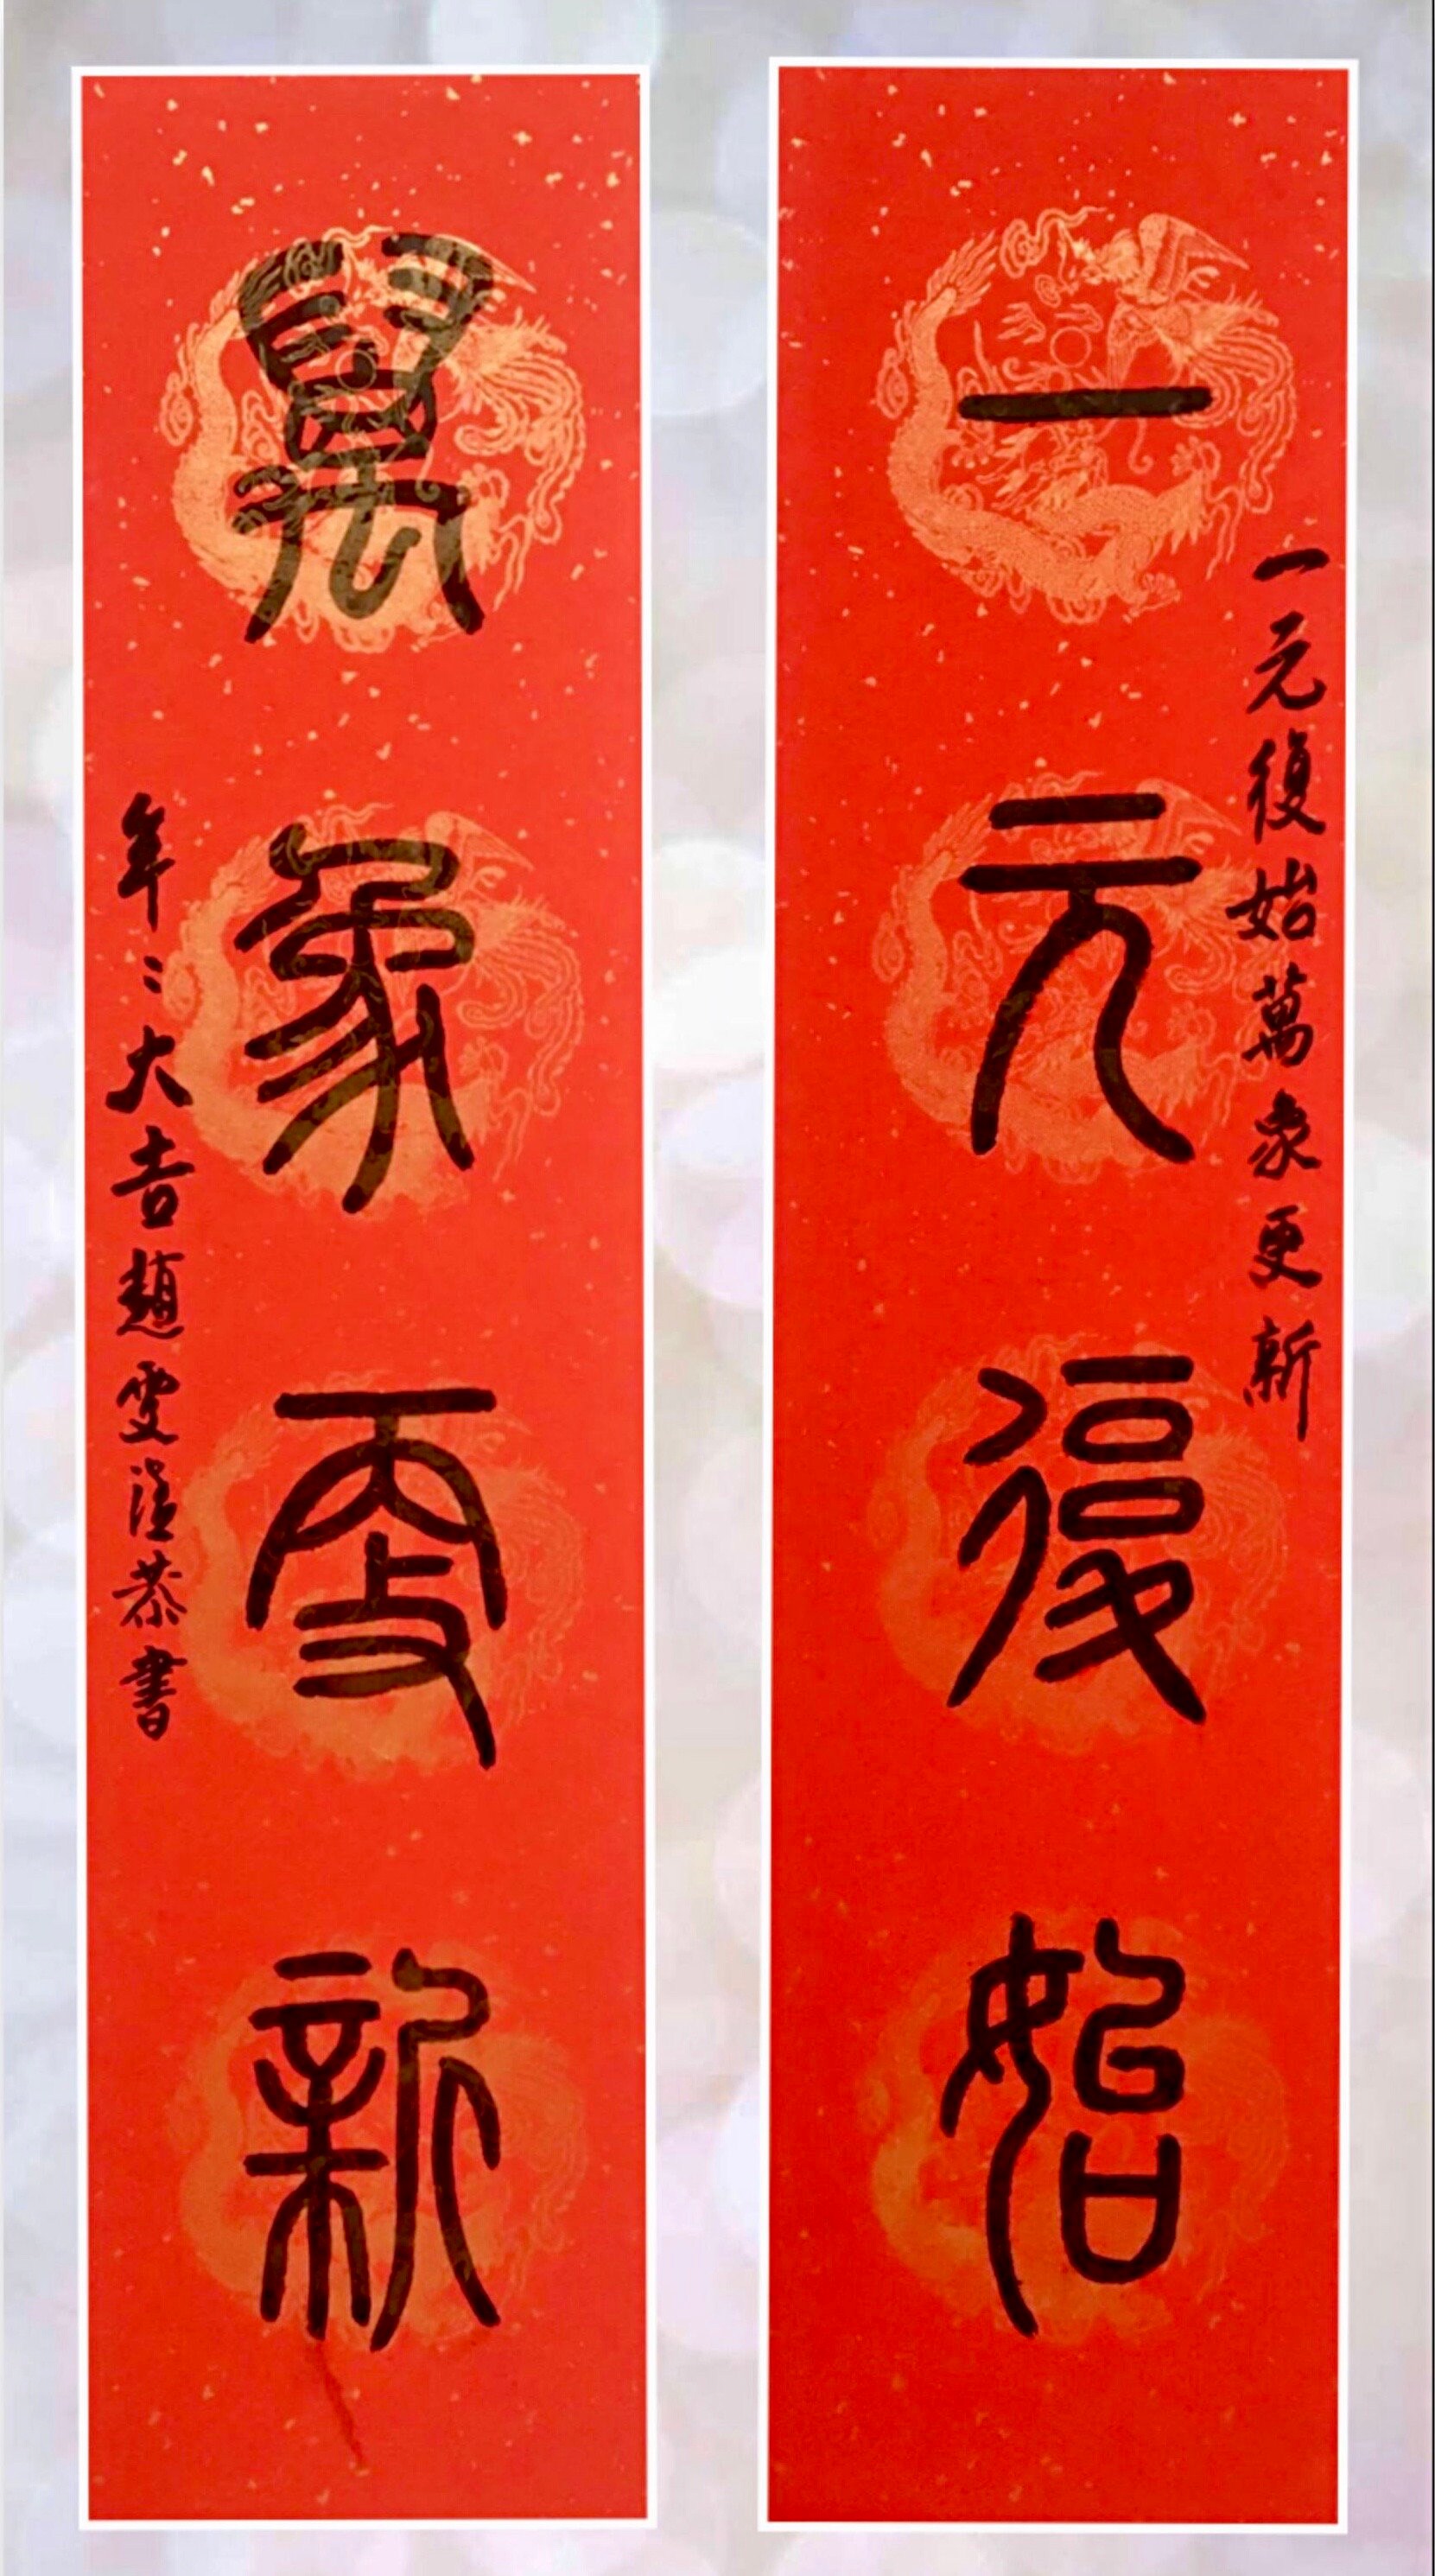 一元復始萬象更新
一元復始
萬象更新
年々大吉趙雯恭書